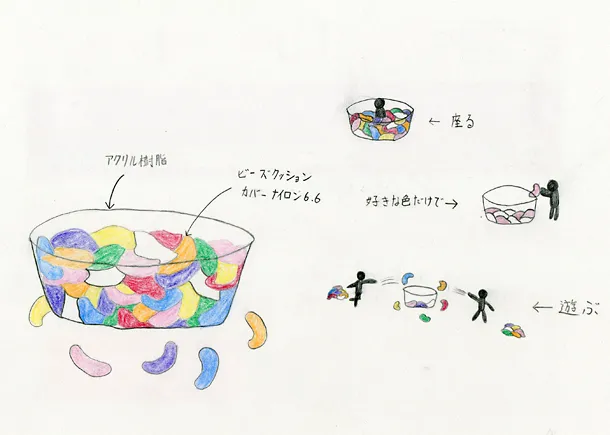 アクリル樹脂
ビーズクッション
カバー ナイロン6.6
← 座る
好きな色だけで→
← 遊ぶ